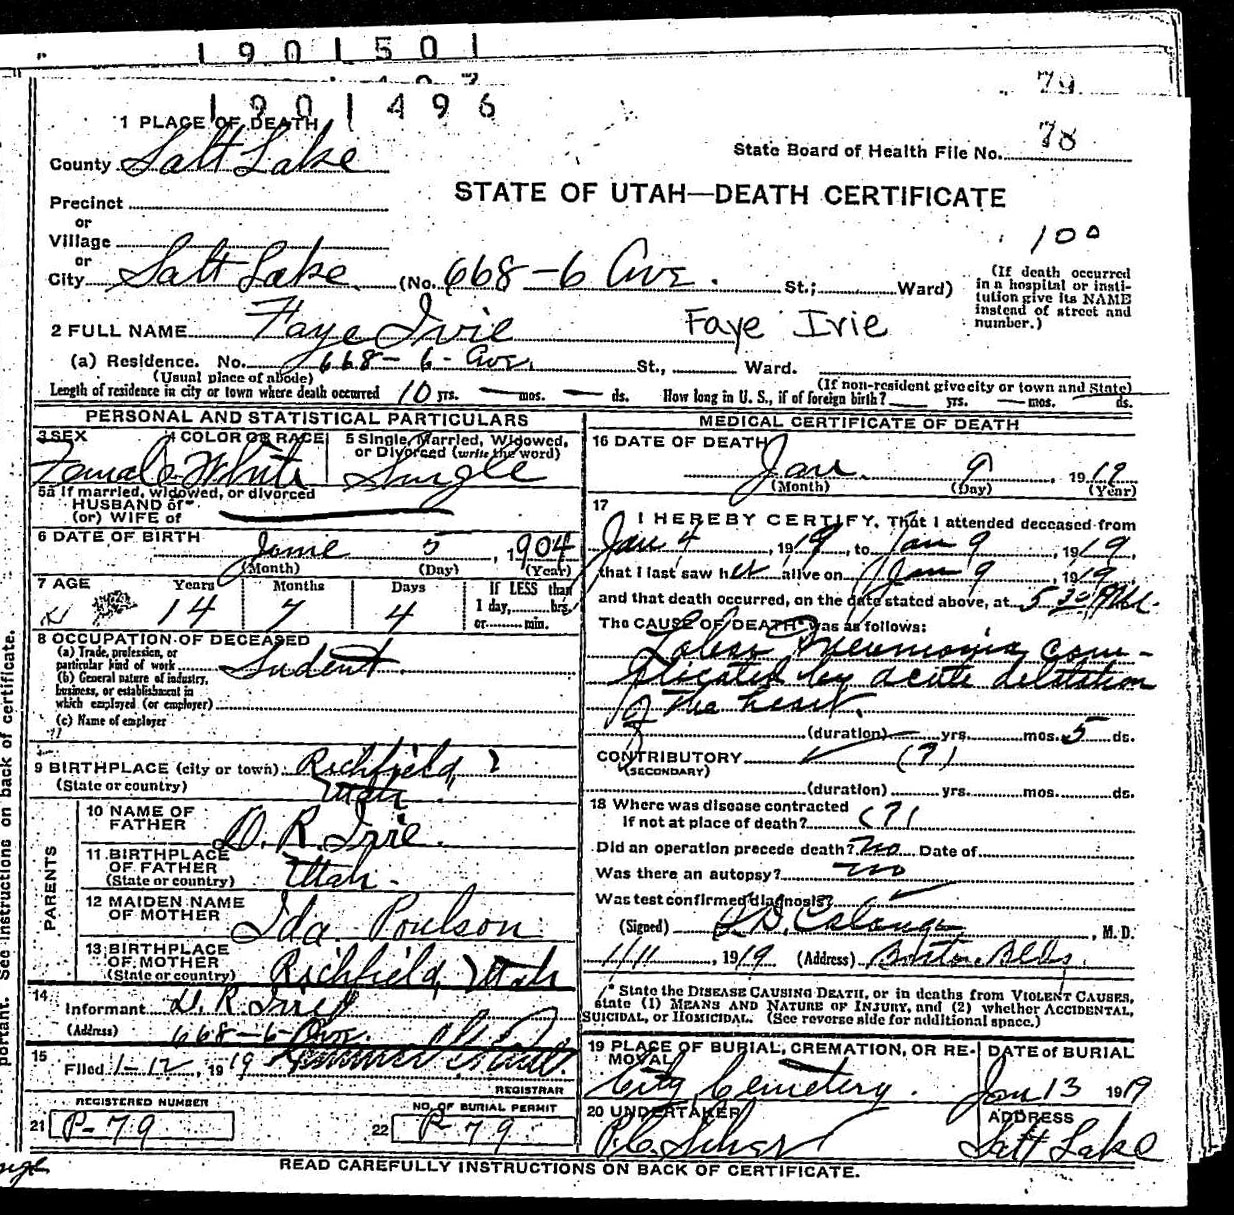 1901501
79
1901496
1 PLACE OF DEATH
78
State Board of Health File No.
County Salt Lake
STATE OF UTAH—DEATH CERTIFICATE
Precinct
or
Village
100
or
City Salt Lake (No. 668-6 Ave. St.; Ward)
(If death occurred in a hospital or insti-
tution give its NAME
instead of street and
number.)
2 FULL NAME Faye Irie Faye Irie
(a) Residence. No. 668-6-Ave. St., Ward.
(Usual place of abode) (If non-resident give city or town and State)
Length of residence in city or town where death occurred 10 yrs. — mos. — ds. How long in U. S., if of foreign birth? — yrs. — mos. ds.
PERSONAL AND STATISTICAL PARTICULARS
3 SEX 4 COLOR OR RACE 5 Single, Married, Widowed,
or Divorced (write the word)
Female White Single
5a If married, widowed, or divorced
HUSBAND of
(or) WIFE of
6 DATE OF BIRTH June 5, 1904
(Month) (Day) (Year)
7 AGE Years Months Days If LESS than
1 day, hrs.
or min.
14 7 4
8 OCCUPATION OF DECEASED
(a) Trade, profession, or
particular kind of work Sudent
(b) General nature of industry,
business, or establishment in
which employed (or employer)
(c) Name of employer
9 BIRTHPLACE (city or town) Richfield
(State or country) Utah
PARENTS
10 NAME OF
FATHER D. R. Irie.
11 BIRTHPLACE
OF FATHER
(State or country) Utah.
12 MAIDEN NAME
OF MOTHER Ida Poulson
13 BIRTHPLACE
OF MOTHER
(State or country) Richfield, Utah
14
Informant D. R. Irie
(Address) 668-6-Ave.
15
Filed 1-12, 1919
REGISTRAR
REGISTERED NUMBER NO. OF BURIAL PERMIT
21 P-79 22 P-79
MEDICAL CERTIFICATE OF DEATH
16 DATE OF DEATH
Jan. 9, 1919
(Month) (Day) (Year)
17
I HEREBY CERTIFY, That I attended deceased from
Jan 4, 1919, to Jan 9, 1919,
that I last saw her alive on Jan 9, 1919,
and that death occurred, on the date stated above, at 5 30 P.M.
The CAUSE OF DEATH* was as follows:
Lobar Pneumonia com-
plicated by acute dilitation
of the heart.
(duration) yrs. mos. 5 ds.
CONTRIBUTORY (?)
(SECONDARY)
(duration) yrs. mos. ds.
18 Where was disease contracted
if not at place of death? (?)
Did an operation precede death? no Date of
Was there an autopsy? no
Was test confirmed diagnosis?
(Signed) , M. D.
1/11, 1919 (Address) Boston Bldg.
* State the DISEASE CAUSING DEATH, or in deaths from VIOLENT CAUSES,
state (1) MEANS AND NATURE OF INJURY, and (2) whether ACCIDENTAL,
SUICIDAL, or HOMICIDAL. (See reverse side for additional space.)
19 PLACE OF BURIAL, CREMATION, OR RE-
MOVAL DATE of BURIAL
City Cemetery. Jan 13 1919
20 UNDERTAKER ADDRESS
Salt Lake
READ CAREFULLY INSTRUCTIONS ON BACK OF CERTIFICATE.
portant. See instructions on back of certificate.